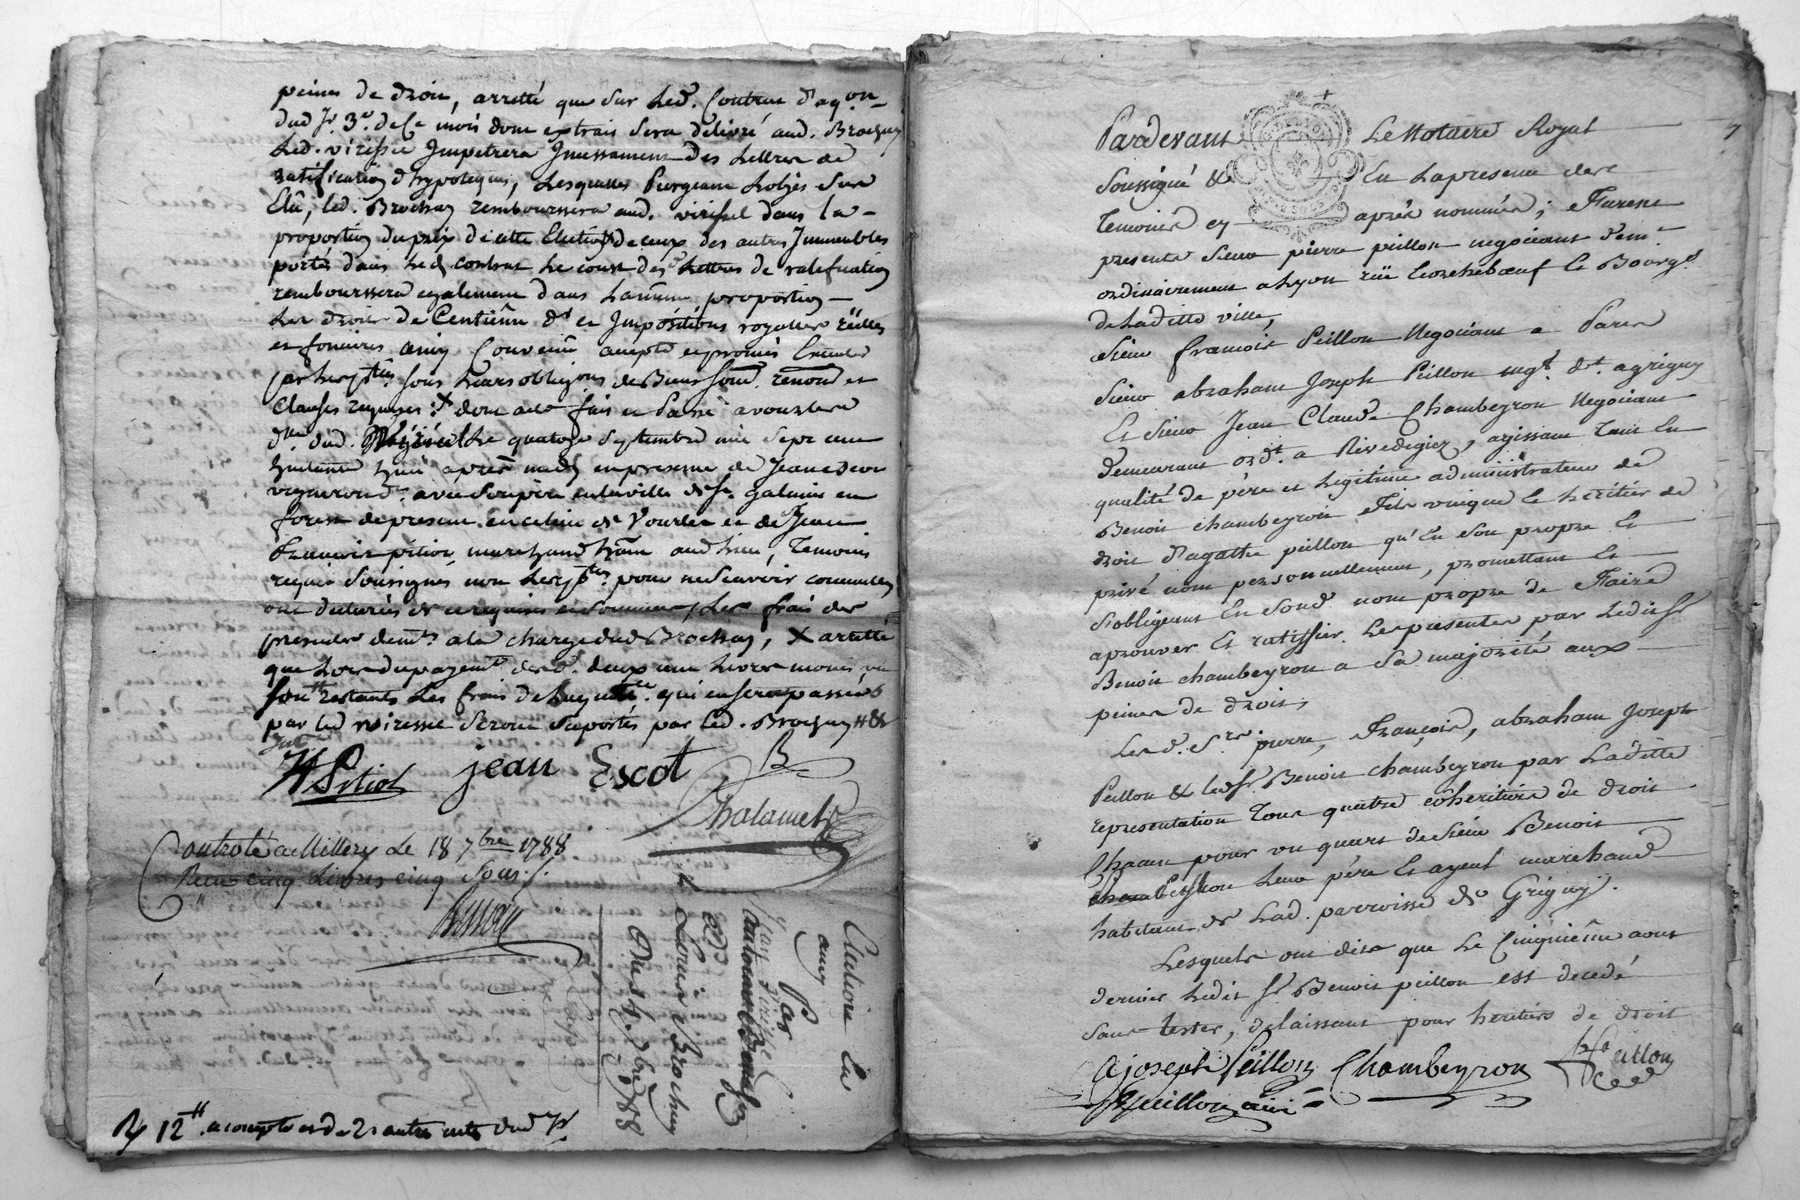 peines de droit, arretté que sur led. Contrat d'aq.on
dud J.r 3.e de Ce mois dont extrais sera délivré aud. Brochay
Led. virissel Impetrera Incessament des Lettres de
ratification d'hypoteques, Lesquelles Purgeant
led. Brochay remboursera aud. virissel dans la
proportion du prix de cette Election de ceux des autres Immeubles
portés dans led contrat le cout des d. Lettres de ratification
remboursera egalement dans la même proportion
Les droits de Centième d.r et Impositions royalles réëlles
et foncieres ainsy Convenu accepté et promis
par les p.ties sous leurs oblig.ons de Biens soum. renon.d et
Clauses requises :X dont acte fait et Passé a vourles
le quatorze septembre mil sept cent
huitante huit après midy en presence de Jean escot
vigneron d.t avec son père en la ville de S.t galmier en
forest de present en ce lieu de Vourles et de Jean
François pitiot marchand aud lieu, Temoins
requis soussignés non les p.ties pour ne sçavoir comme elles
ont declarés de ce requises et sommées, Les frais des
presentes dem.t a la charge dud Brochay, X arretté
que lors du payem.t des d. deux cent livres moins un
sou restants Les frais de la quittance qui en sera passée
par led virissel seront suportés par led. Brochay
JF Pitiot jean Escot
Chalamel
Controlé a Millery Le 18 7bre 1788
Reçu cinq Livres cinq Sous ./.
Cession En
par
a Louis Brochay
Du 14 7bre 1788
Ry 12 # a compte et de 2 autres actes dud J.r
7
Pardevant Le Notaire Royal
Soussigné & En La presence des
Temoins cy après nommés; Furent
presents Sieur pierre peillon negociant dem.t
ordinairement a Lyon rüe Ecorcheboeuf Et Bourg.s
de Ladite ville,
Sieur françois Peillon Negociant a Paris
Sieur abraham Joseph Peillon neg.t d.t a grigny
Et Sieur Jean Claude Chambeyron Negociant
demeurant ord.t a Rivedegier, agissant Tant En
qualité de père et Legitime administrateur de
Benoit chambeyron Fils unique Et héritier de
droit d'agathe peillon qu'En son propre Et
privé nom personnellement, promettant Et
S'obligeant En Sond. nom propre de Faire
aprouver Et ratiffier Les presentes par Ledit S.r
Benoit chambeyron a Sa majorité aux
peines de droit,
Les d. S.rs pierre, François, abraham Joseph
Peillon & led S.r Benoit chambeyron par Ladite
representation Tous quatre cohéritiers de droit
Chacun pour un quart de Sieur Benoit
Peillon Leur père Et ayeul marchand
habitant de Lad. parroisse de Grigny.
Lesquels ont dit que Le Cinquième aout
dernier Ledit S.r Benoit peillon est decedé
Sans tester, delaissant pour héritiers de droit
ajoseph Peillon Chambeyron Peillon
Peillon ainé